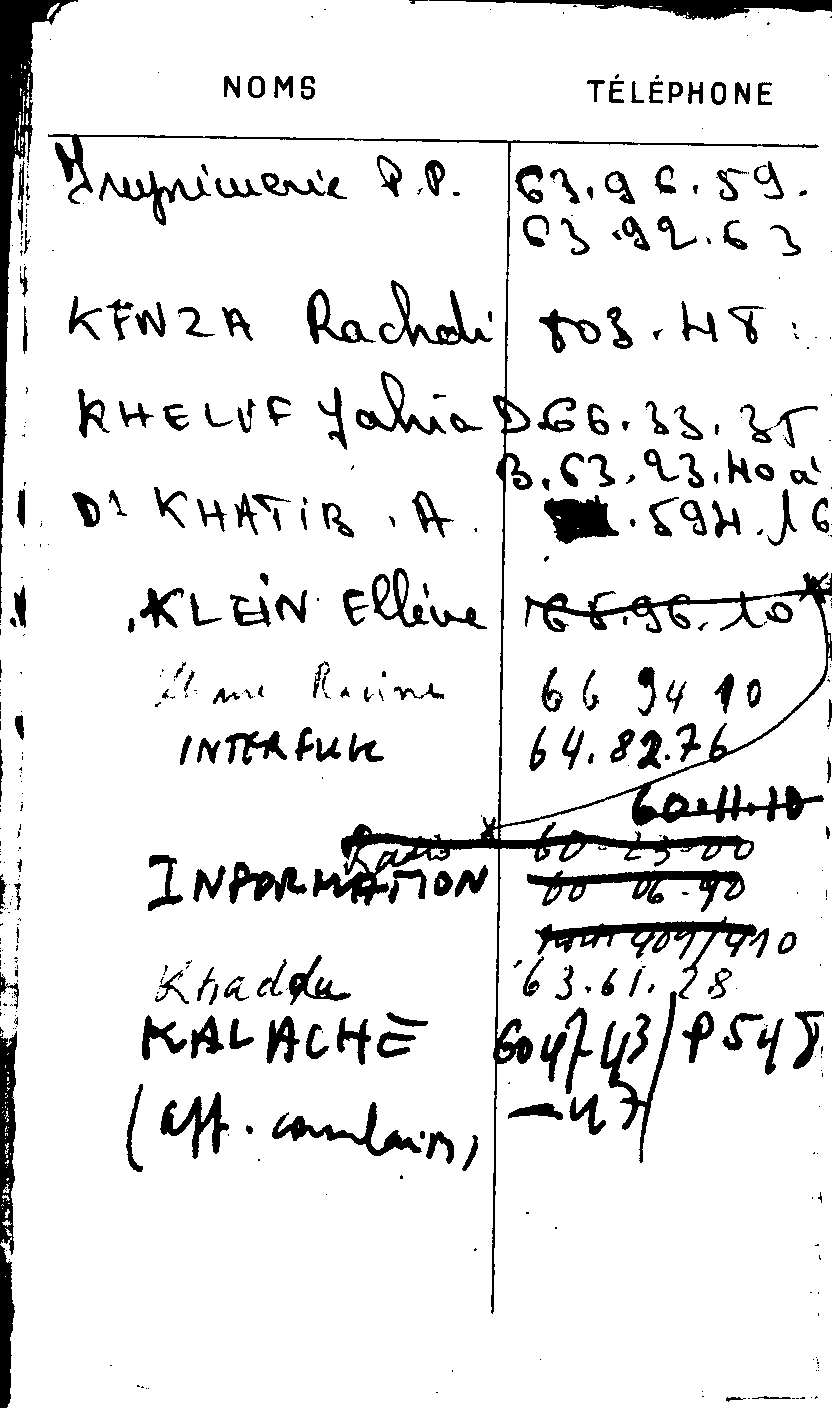 NOMS TÉLÉPHONE
Imprimerie P.P. 63.96.59.
63.92.63
KENZA Rachedi 803.48
KHELUF Yahia D.66.33.35
B.63.23.40 à
Dr KHATIB .A. .594.16
KLEIN Ellève 65.96.10
Racine 66 94 10
INTERFUK 64.82.76
60.11.10
Radio 60-23-00
INFORMATION 60 06-90
409/410
Khadda 63.61.28
KALACHE 604743/P548
(aff. consulaires) -47